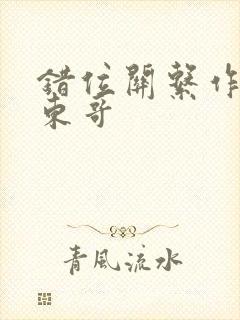 錯位關繫作
東哥
青風流水